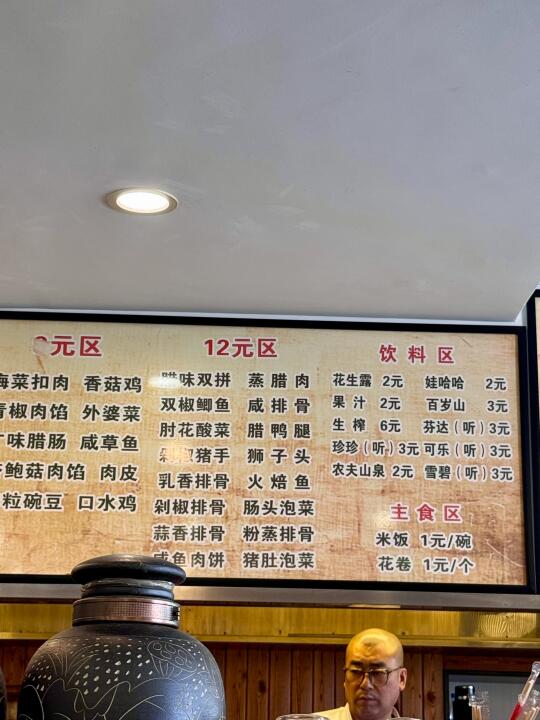 元区
菜扣肉 香菇鸡
椒肉馅 外婆菜
味腊肠 咸草鱼
鲍菇肉馅 肉皮
粒碗豆 口水鸡
12元区
腊味双拼 蒸腊肉
双椒鲫鱼 咸排骨
肘花酸菜 腊鸭腿
剁椒猪手 狮子头
乳香排骨 火焙鱼
剁椒排骨 肠头泡菜
蒜香排骨 粉蒸排骨
咸鱼肉饼 猪肚泡菜
饮料区
花生露 2元 娃哈哈 2元
果汁 2元 百岁山 3元
生榨 6元 芬达(听)3元
珍珍(听)3元 可乐(听)3元
农夫山泉 2元 雪碧(听)3元
主食区
米饭 1元/碗
花卷 1元/个